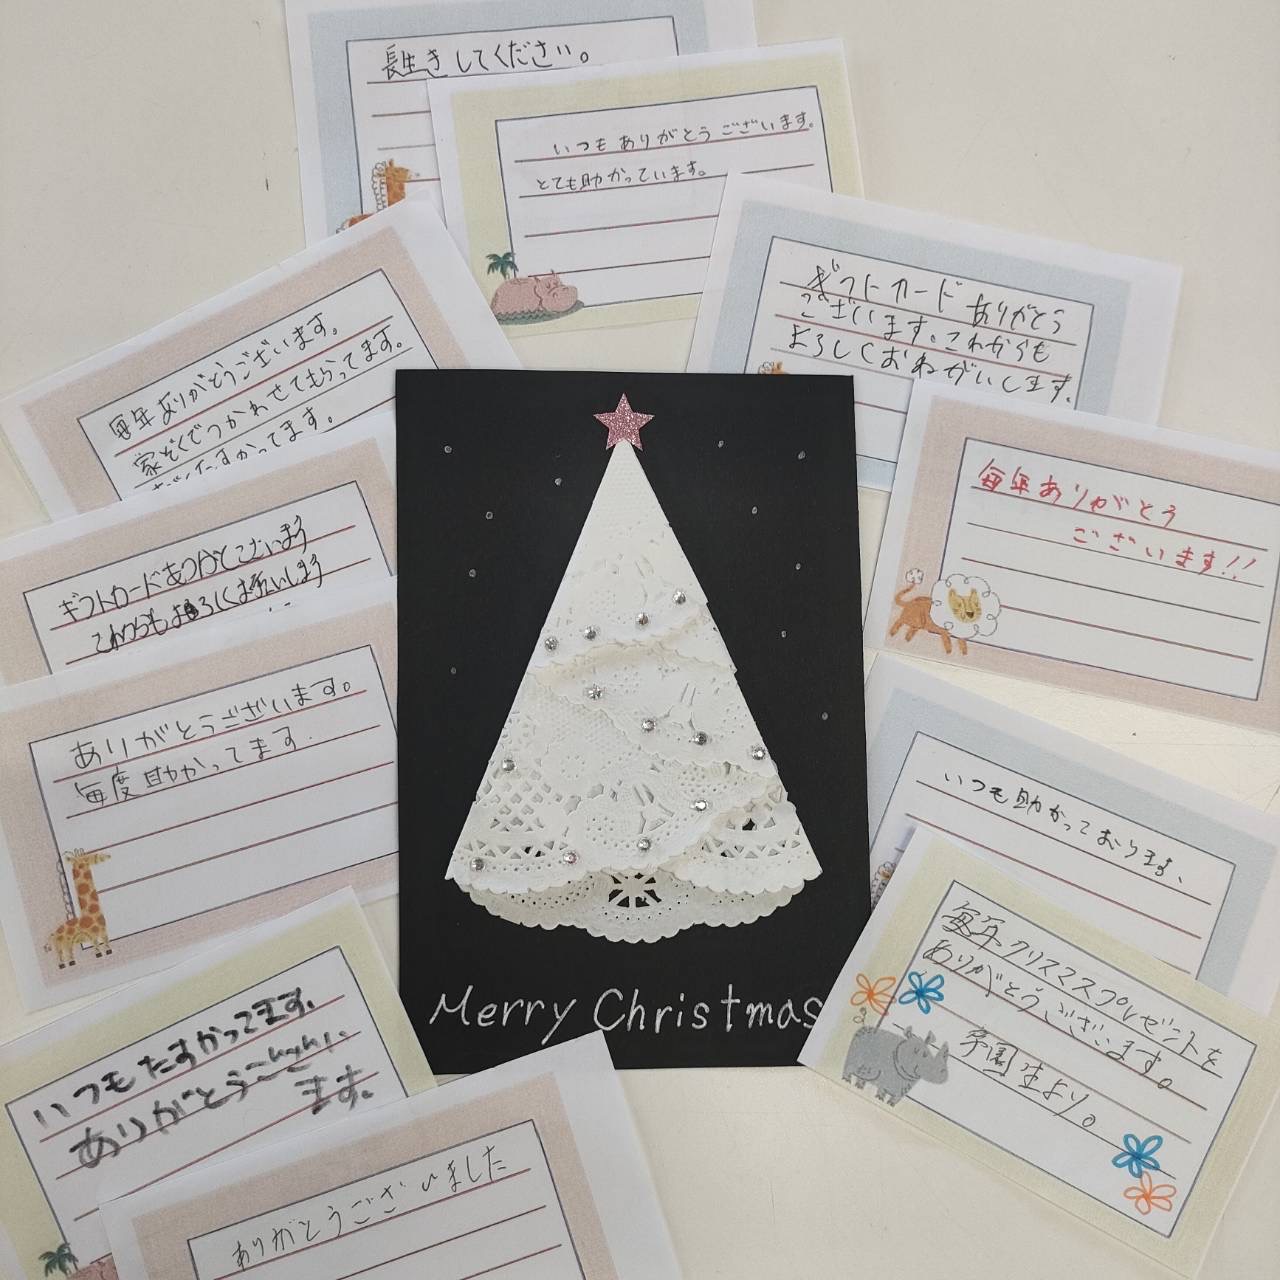 長生きしてください。
いつもありがとうございます。
とても助かっています。
ギフトカードありがとう
ございます。これからも
よろしくおねがいします。
毎年ありがとうございます。
家ぞくでつかわせてもらってます。
たすかってます。
毎年ありがとう
ございます!!
ギフトカードありがとうございます
これからもよろしくお願いします
ありがとうございます。
毎度助かってます.
いつも助かっております、
毎年クリスマスプレゼントを
ありがとうございます。
学園生より。
Merry Christmas
いつもたすかってます。
ありがとうござい
ます。
ありがとうございました